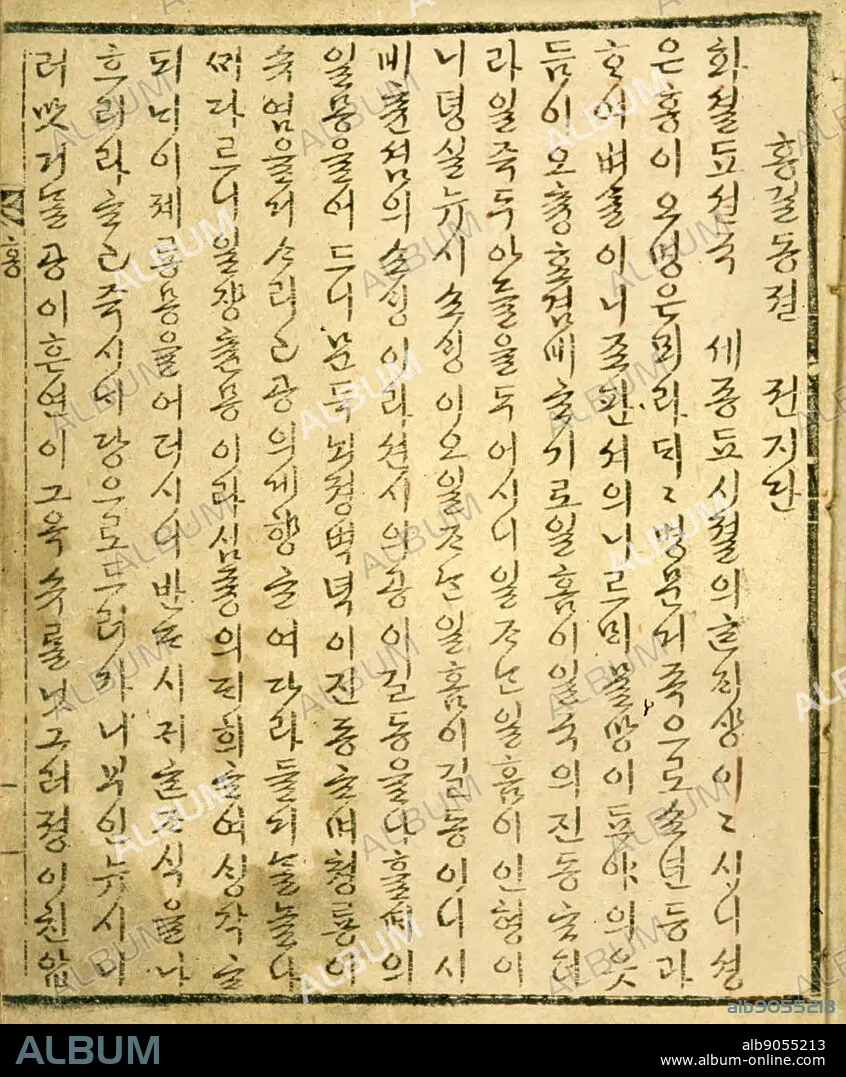 홍길동젼 권지단
화셜 됴션국 세종됴 시졀의 ᄒᆞᆫ ᄌᆡ상이 〻 시니 셩
은 홍이오 명은 뫼라 ᄃᆡ〻 명문거족으로 쇼년등과
ᄒᆞ여 벼ᄉᆞᆯ이 니조판셔의 니르ᄆᆡ 물망이 됴야의 읏
듬이오 츙효겸비ᄒᆞ기로 일홈이 일국의 진동ᄒᆞ더
라 일즉 두 아들을 두어시니 일ᄌᆞᄂᆞᆫ 일홈이 인형이
니 뎡실 뉴시 소ᄉᆡᆼ이오 일ᄌᆞᄂᆞᆫ 일홈이 길동이니 시
비 츈셤의 소ᄉᆡᆼ이라 션시의 공이 길동을 나흘 ᄯᆡ의
일몽을 어드니 문득 뇌졍벽녁이 진동ᄒᆞ며 쳥룡이
슈염을 거ᄉᆞ리고 공의게 향ᄒᆞ여 다라들거ᄂᆞᆯ 놀나
ᄭᆡ다르니 일쟝츈몽이라 심즁의 ᄃᆡ희ᄒᆞ여 ᄉᆡᆼ각ᄒᆞ
되 ᄂᆡ 이제 룡몽을 어더시니 반ᄃᆞ시 귀ᄒᆞᆫ ᄌᆞ식을 나
흐리라 ᄒᆞ고 즉시 ᄂᆡ당으로 드러가니 부인 뉴시 니
러 맛거ᄂᆞᆯ 공이 흔연이 그 옥슈ᄅᆞᆯ 닛그러 졍이 친압
홍
ALBUM
alb9055213
ALBUM
alb9055213
www.album-online.com